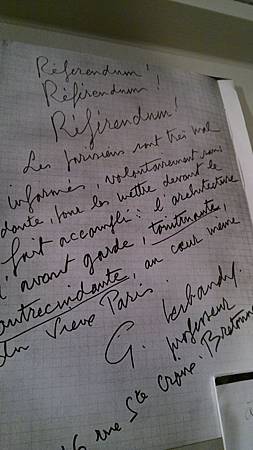 Référendum !
Référendum !
Référendum !
Les parisiens sont très mal
informés, volontairement sans
doute, pour les mettre devant le
fait accompli : l'architecture
d'avant garde, tonitruante,
outrecuidante, au cœur même
du Vieux Paris.
G.
professeur
16 rue Ste Croix. Bretonne